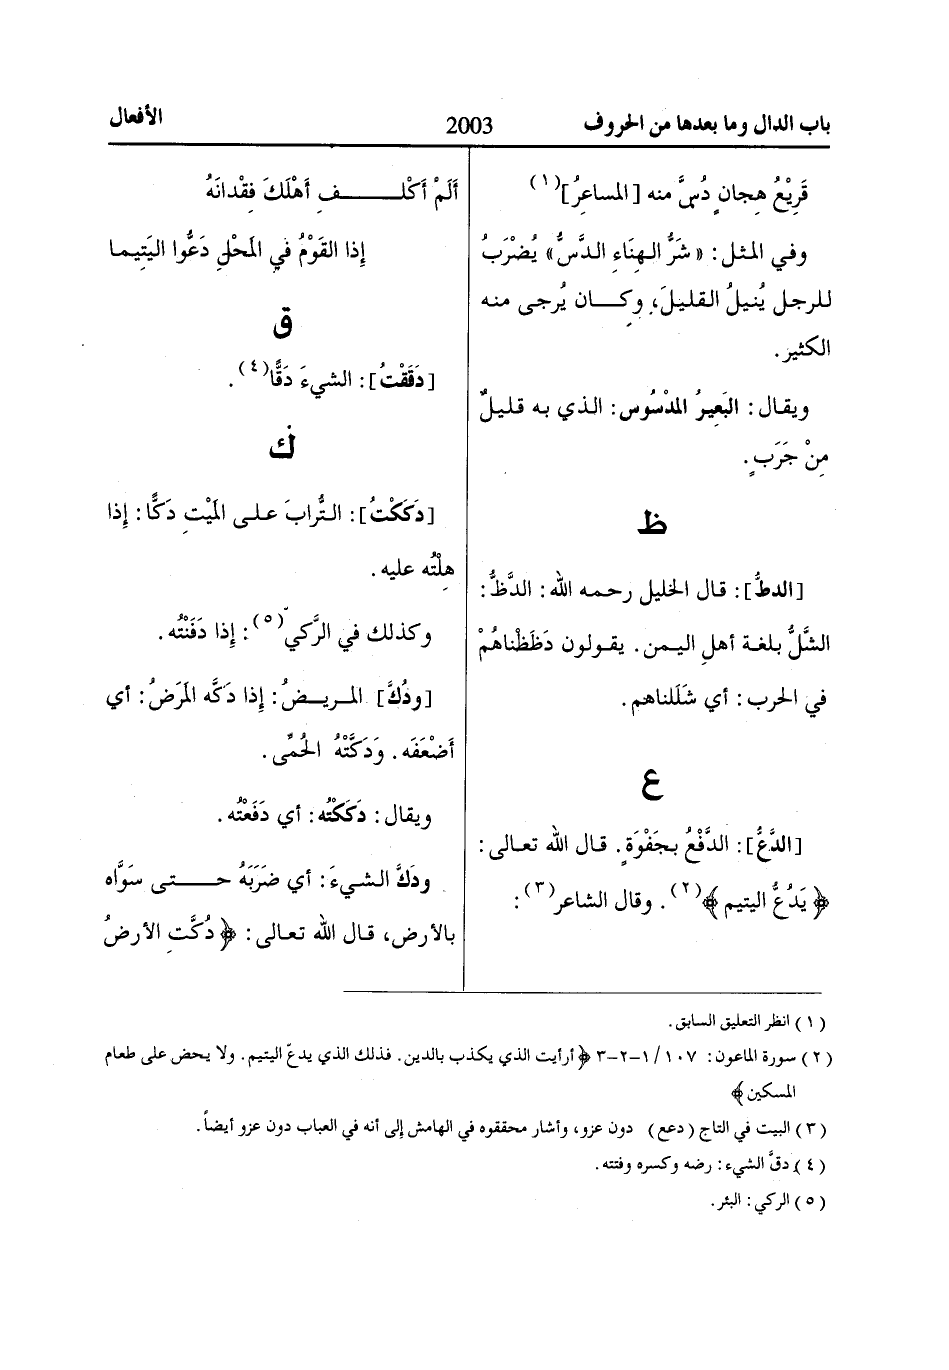 باب الدال وما بعدها من الحروف
2003
الأفعال
قَرِيْعُ هِجانٍ دُسَّ منه [المساعرُ](١)
وفي المثل: «شَرُّ الهِنَاءِ الدَّسُّ» يُضْرَبُ
للرجل يُنيلُ القليلَ، وكان يُرجى منه
الكثير.
ويقال: البَعِيرُ المَدْسُوس: الذي به قليلٌ
مِنْ جَرَبٍ.
ظ
[الدظُّ]: قال الخليل رحمه الله: الدَّظُّ:
الشَّلُّ بلغة أهلِ اليمن. يقولون دَظَظْناهُمْ
في الحرب: أي شَلَلناهم.
ع
[الدَّعُّ]: الدَّفْعُ بجَفْوَةٍ. قال الله تعالى:
﴿يَدُعُّ اليتيم﴾(٢). وقال الشاعر(٣):
أَلَمْ أَكْلفِ أَهْلَكَ فِقْدانَهُ
إذا القَوْمُ في المَحْلِ دَعُّوا اليَتِيما
ق
[دَقَقْتُ]: الشيءَ دَقًّا(٤).
ك
[دَكَكْتُ]: التُّرابَ على المَيْتِ دَكًّا: إذا
هِلْتُه عليه.
وكذلك في الرَّكيّ(٥): إذا دَفَنْتُه.
[ودُكَّ] المريضُ: إذا دَكَّه المَرَضُ: أي
أَضْعَفَه. وَدَكَّتْهُ الحُمَّى.
ويقال: دَكَكْتُه: أي دَفَعْتُه.
ودَكَّ الشيءَ: أي ضَرَبَهُ حتى سَوَّاه
بالأرض، قال الله تعالى: ﴿دُكَّتِ الأرضُ
(١) انظر التعليق السابق.
(٢) سورة الماعون: ١٠٧/ ١-٢-٣ ﴿أرأيت الذي يكذب بالدين. فذلك الذي يدعّ اليتيم. ولا يحض على طعام
المسكين﴾
(٣) البيت في التاج (دعع) دون عزو، وأشار محققوه في الهامش إلى أنه في العباب دون عزو أيضاً.
(٤) دقَّ الشيء: رضه وكسره وفتته.
(٥) الركي: البئر.